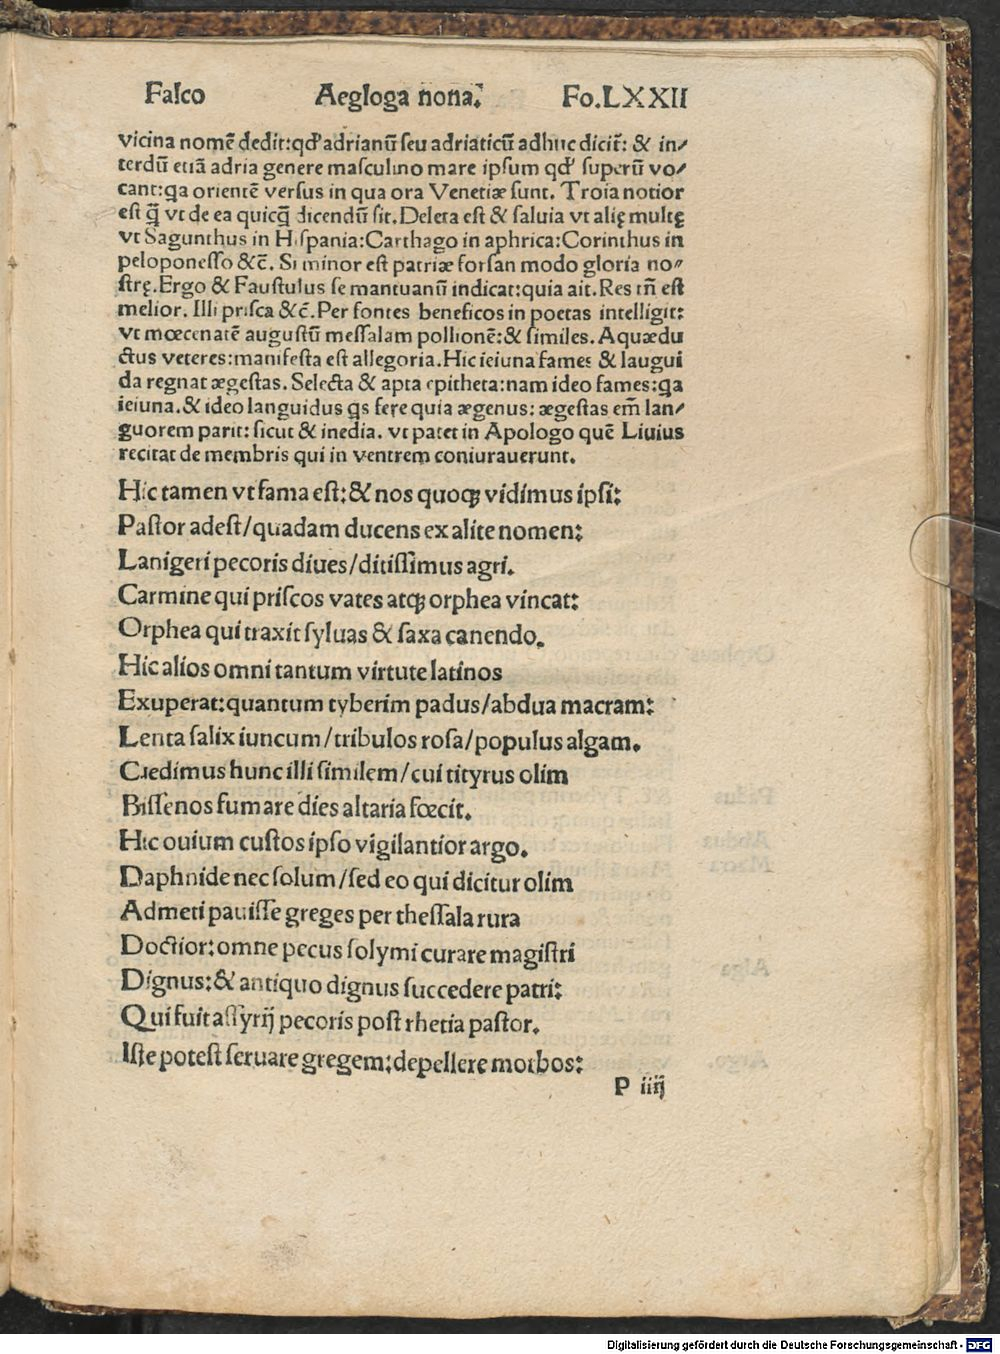 Falco Aegloga nona. Fo.LXXII
vicina nomē dedit:qđ adrianū seu adriaticū adhuc dicit̃: & in/
terdū etiā adria genere masculino mare ipsum qđ superū vo/
cant:ꝗa orientē versus in qua ora Venetiæ sunt. Troia notior
est q̃ vt de ea quicq̃ dicendū sit. Deleta est & saluia vt alię multę
vt Sagunthus in Hispania:Carthago in aphrica:Corinthus in
peloponesso &c̄. Si minor est patriæ forsan modo gloria no/
strę. Ergo & Faustulus se mantuanū indicat:quia ait. Res tñ est
melior. Illi prisca &c̄. Per fontes beneficos in poetas intelligit:
vt mœcenatē augustū messalam pollionē:& similes. Aquædu
ctus veteres:manifesta est allegoria. Hic ieiuna fames & laugui
da regnat ægestas. Selecta & apta epitheta:nam ideo fames:ꝗa
ieiuna.& ideo languidus ꝗs fere quia ægenus: ægestas em̄ lan/
guorem parit: sicut & inedia. vt patet in Apologo quē Liuius
recitat de membris qui in ventrem coniurauerunt.
Hic tamen vt fama est:& nos quoqꝫ vidimus ipsi:
Pastor adest/quadam ducens ex alite nomen:
Lanigeri pecoris diues/ditissimus agri.
Carmine qui priscos vates atqꝫ orphea vincat:
Orphea qui traxit syluas & saxa canendo.
Hic alios omni tantum virtute latinos
Exuperat:quantum tyberim padus/abdua macram:
Lenta salix iuncum/tribulos rosa/populus algam.
Credimus hunc illi similem/cui tityrus olim
Bissenos fumare dies altaria fœcit.
Hic ouium custos ipso vigilantior argo.
Daphnide nec solum/sed eo qui dicitur olim
Admeti pauisse greges per thessala rura
Doctior:omne pecus solymi curare magistri
Dignus:& antiquo dignus succedere patri:
Qui fuit assyrij pecoris post rhetia pastor.
Iste potest seruare gregem:depellere morbos:
P iiij
Digitalisierung gefördert durch die Deutsche Forschungsgemeinschaft - DFG